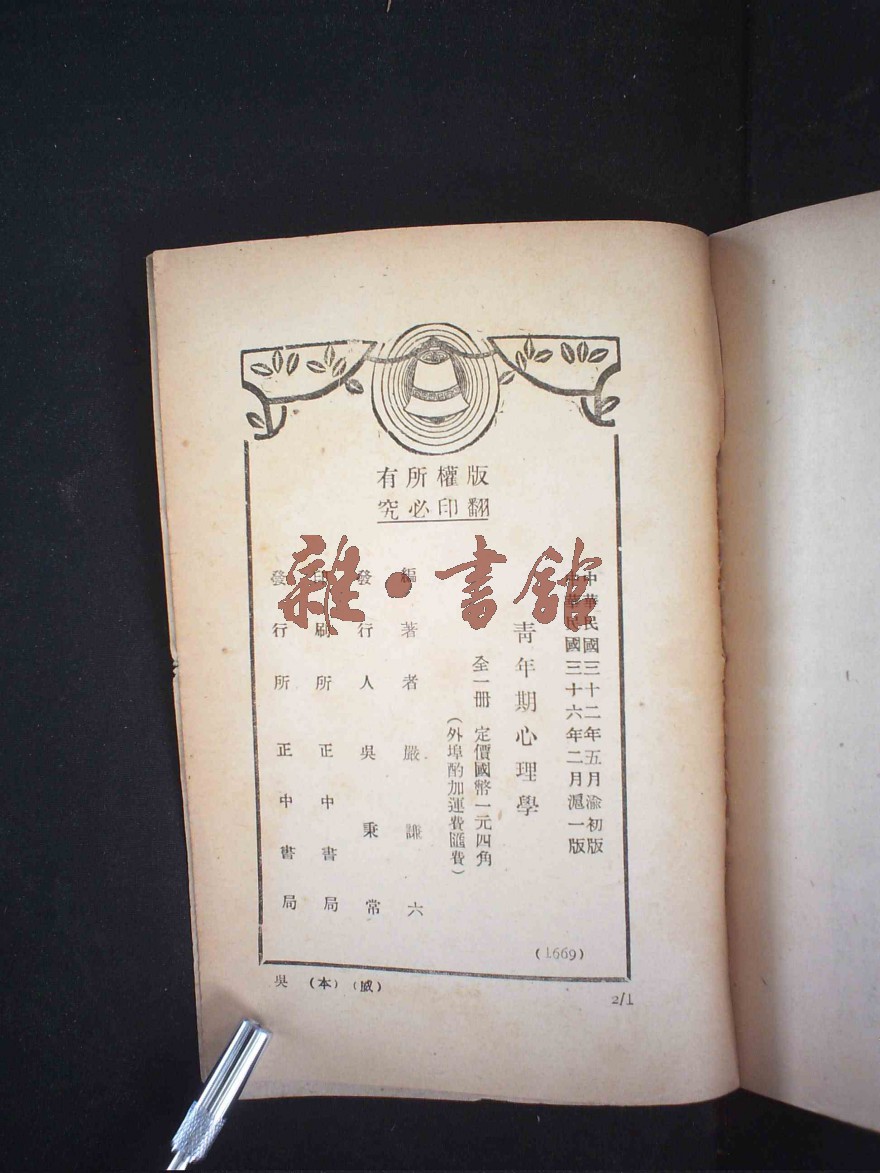 版權所有
翻印必究
中華民國三十二年五月渝初版
中華民國三十六年二月滬一版
青年期心理學
全一册 定價國幣一元四角
(外埠酌加運費匯費)
編著者 嚴謙六
發行人 吳秉常
印刷所 正中書局
發行所 正中書局
(1669)
吳 (本) (威)
2/1
雜·書館